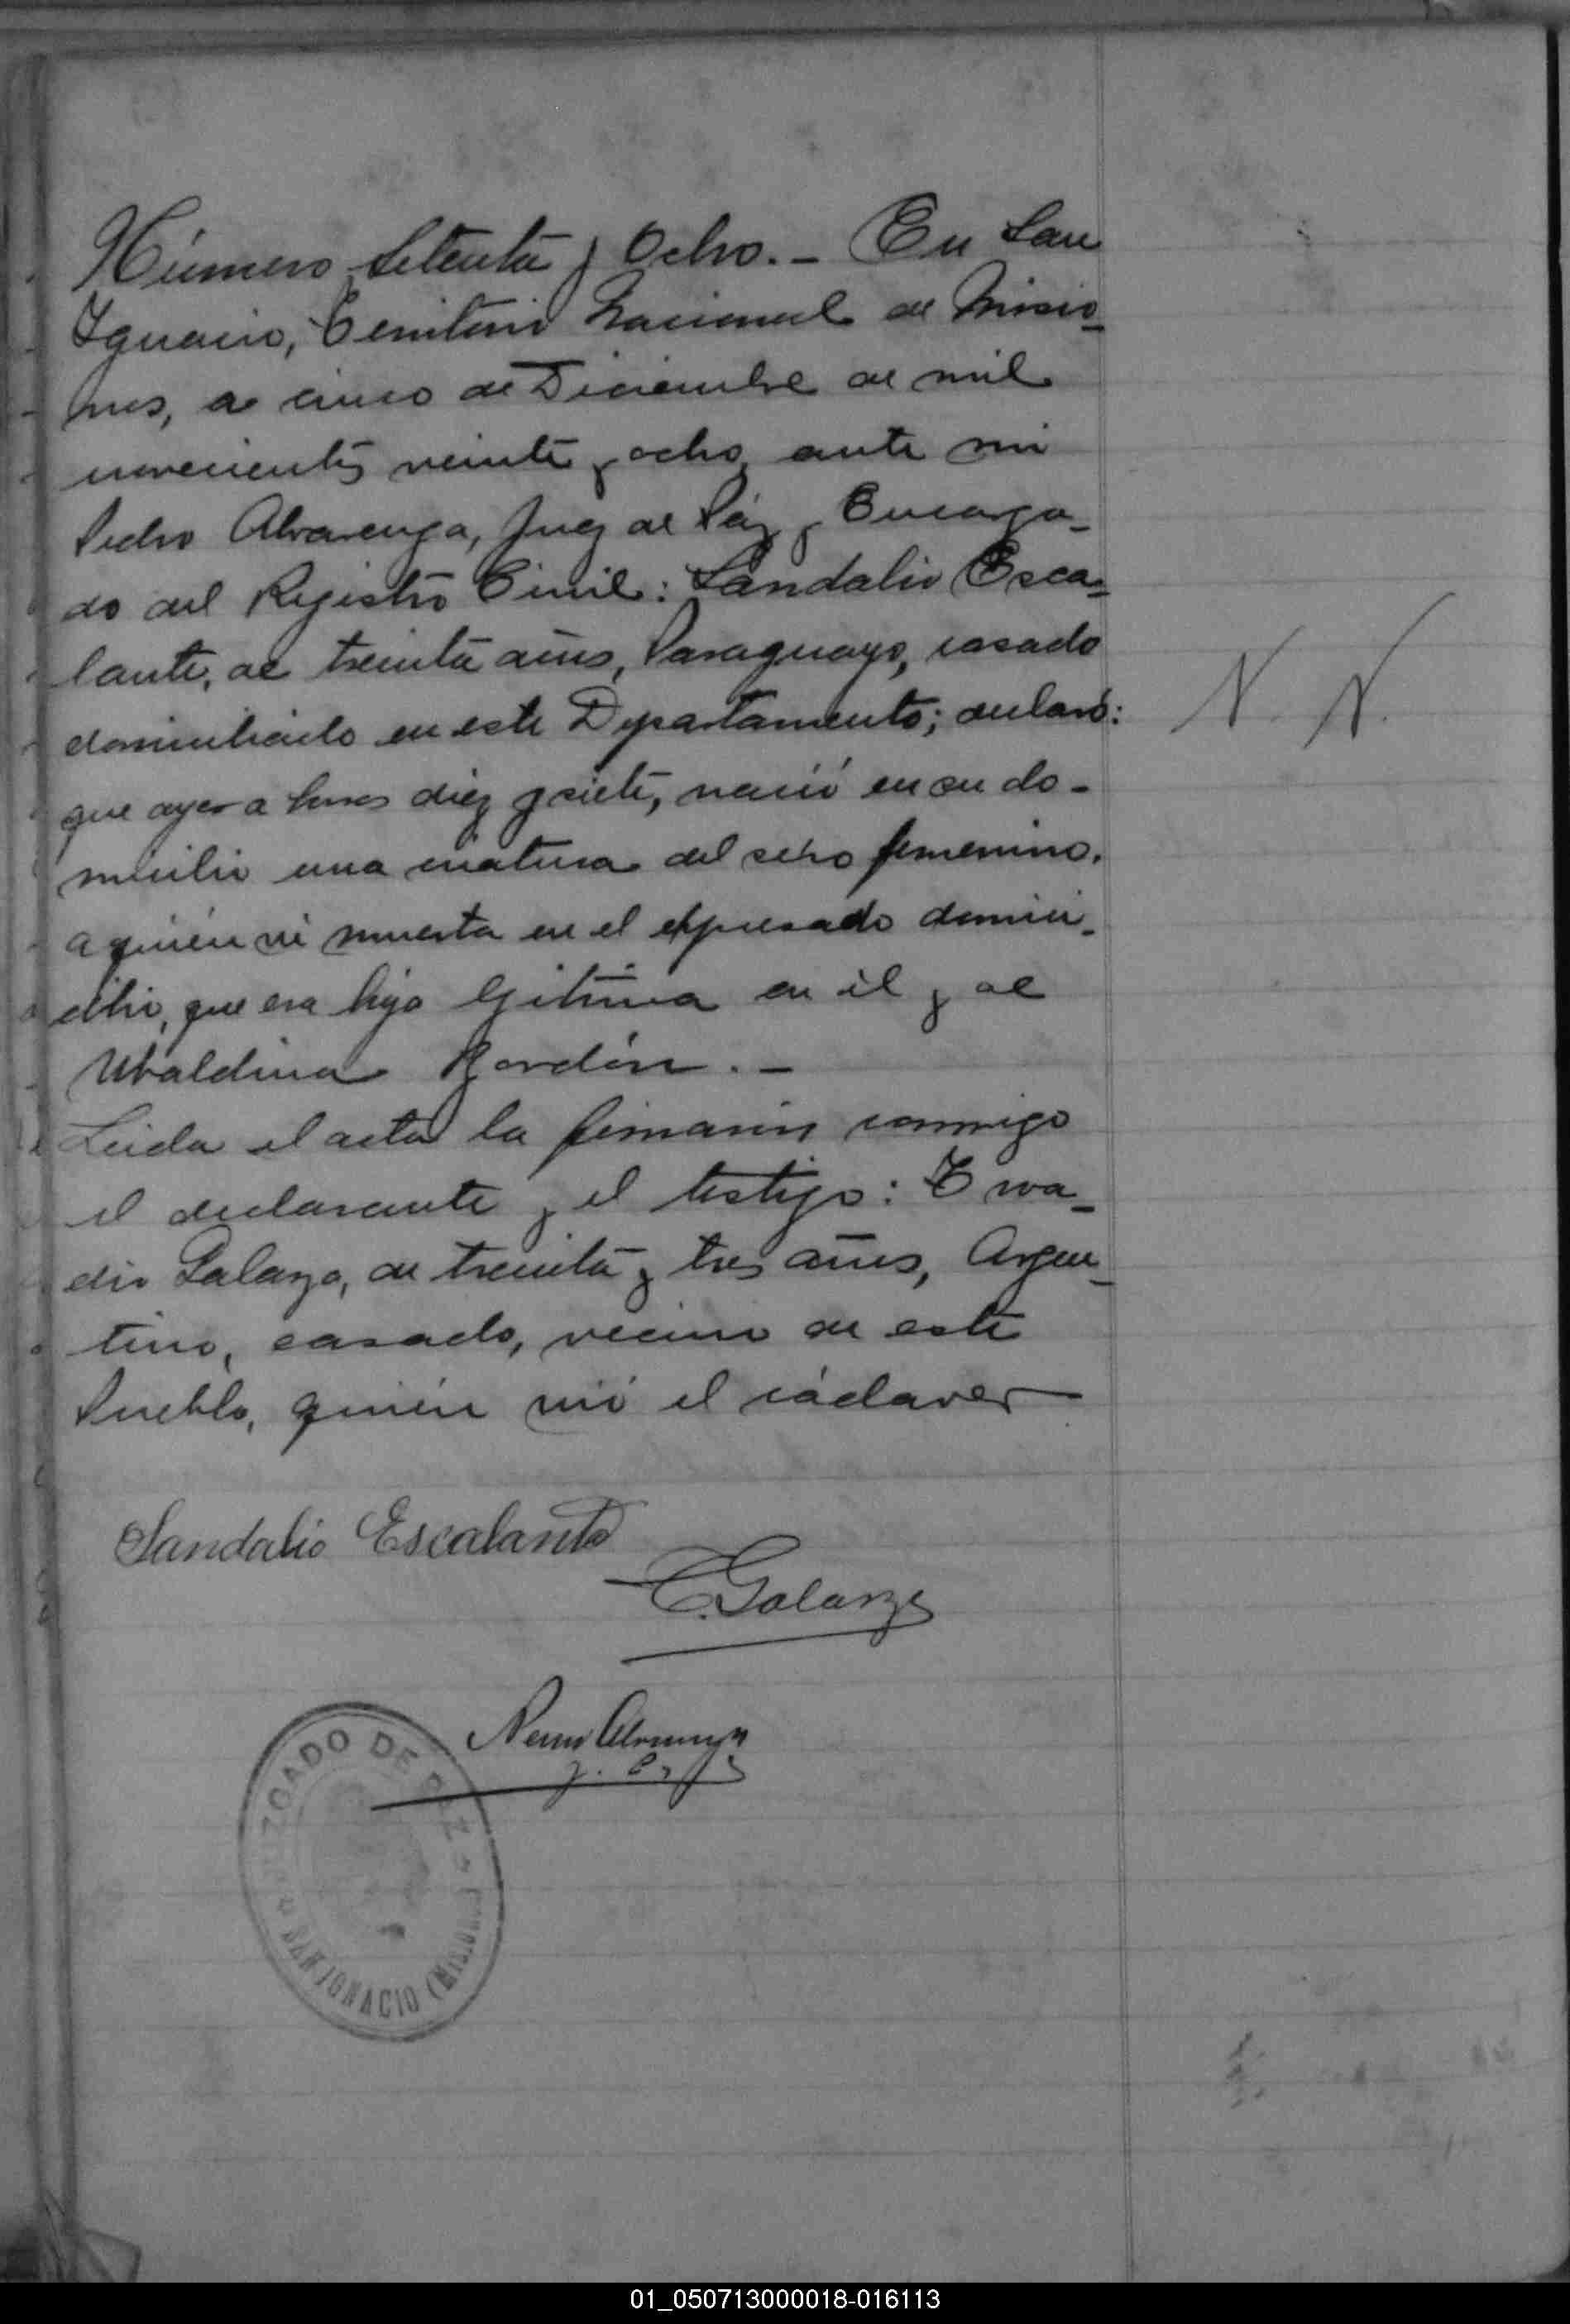 Número Setenta y Ocho.- En San
Ignacio, Territorio Nacional de Misio-
nes, a cinco de Diciembre de mil
novecientos veinte y ocho, ante mi
Pedro Alvarenga, Juez de Páz y Encarga-
do del Registro Civil: Sandalio Esca-
lante, de treinta años, Paraguayo, casado
domiciliado en este Departamento; declaró:
que ayer a horas diez y siete, nació en su do-
micilio una criatura del sexo femenino.
a quién vi muerta en el expresado domici-
cilio, que era hija legitima en él y de
Ubaldina Gordón.-
Leida el acta la firmarón conmigo
el declarante y el testigo:
Galarza, de treinta y tres años, Argen-
tino, casado, vecino de este
Pueblo, quién vió el cádaver
N. N.
Sandalio Escalante
Galarza
Alvarenga
JUZGADO DE PAZ
SAN IGNACIO (MISIONES)
01_050713000018-016113